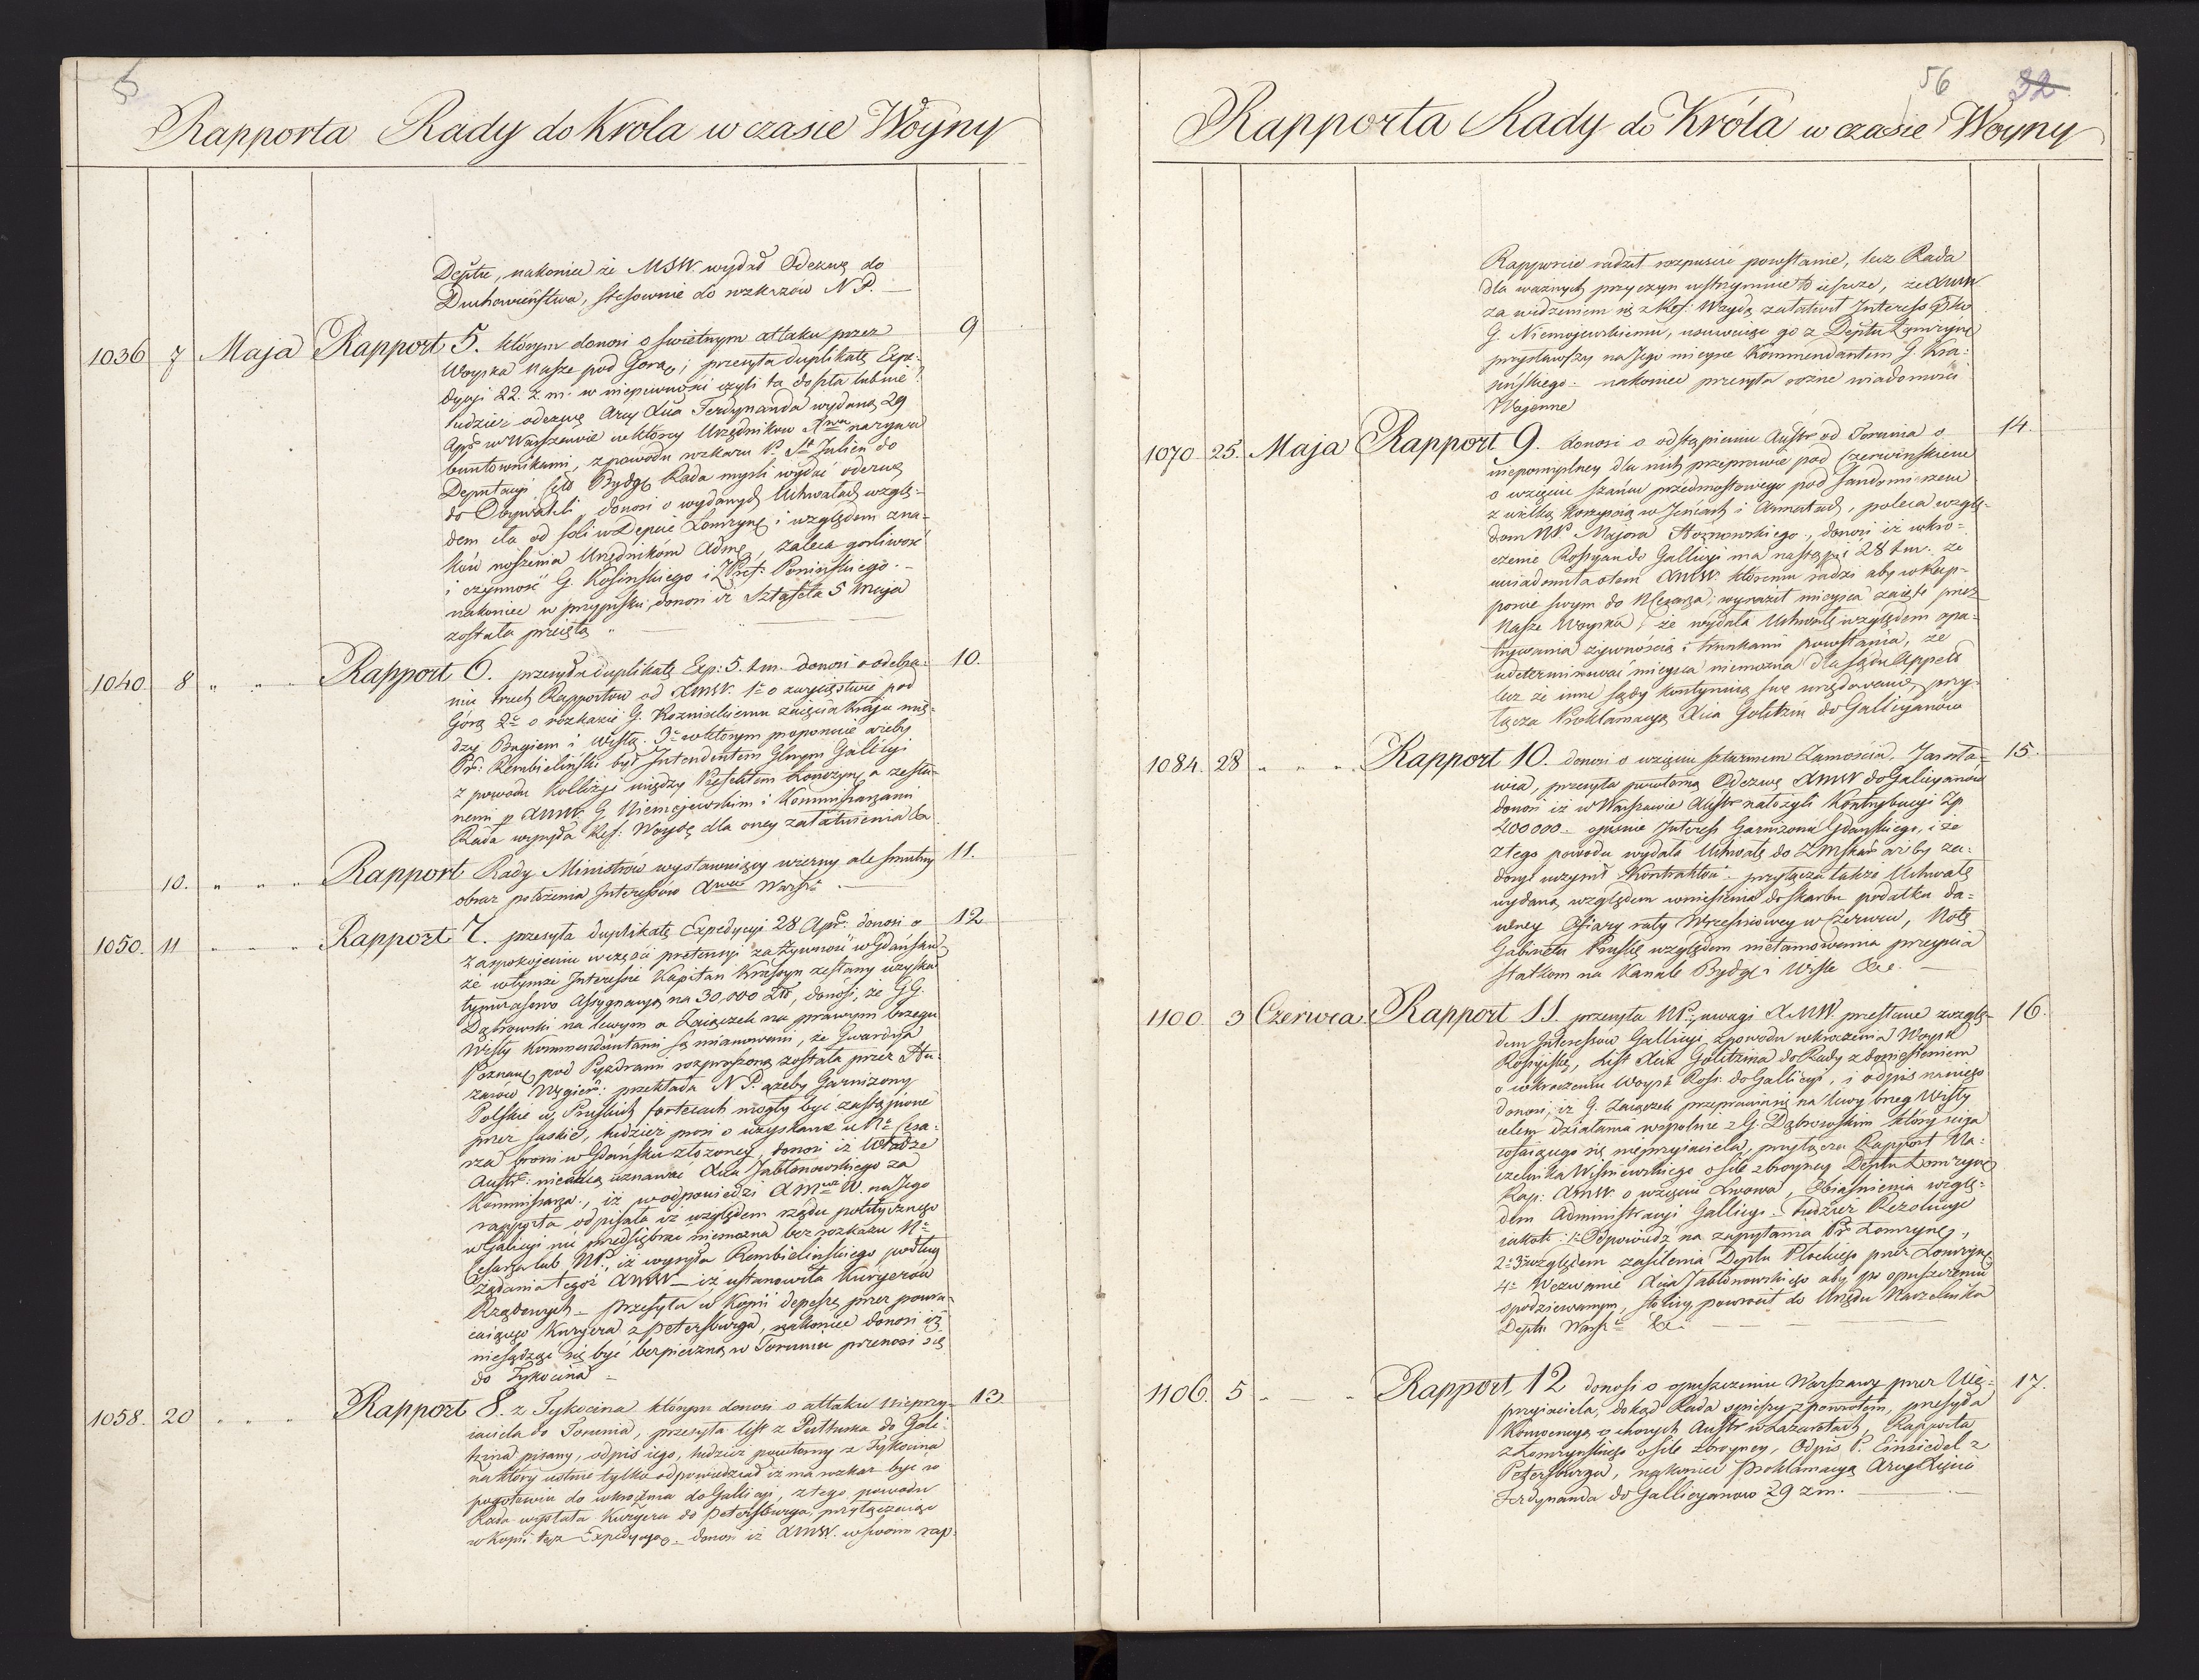 Rapporta Rady do Krola w czasie Woyny
Deptu, nakoniec że MSW. wydał Odezwę do
Duchowieństwa, stosownie do rozkazow N. P. —
1036 7 Maja Rapport 5. którym donosi o świetnym attaku przez 9
Woyska nasze pod Gorą, przesyła duplikatę Expe-
dycyi 22. z. m. w niepewności czyli ta doszła lub nie
tudzież odezwę Arcy Xcia Ferdynanda wydaną 29
Apr. w Warszawie w którey Urzędnikow Xtwa nazywa
buntownikami, z powodu rozkazu P. St Julien do
Deputacyi Rada mysli wydać odezwę
do Obywateli, donosi o wydanych Uchwałach wzglę-
dem cła od soli w Depcie Łomżyn i względem zna-
ków noszenia Urzędnikóm Adm, zaleca gorliwość
i czynność G. Kosinskiego i Pref: Poninskiego. —
nakoniec w przypisku donosi iż Sztafeta 5 Maja
została przejęta " —
1040. 8 " " " Rapport 6. przesyła duplikatę Exp: 5. t. m. donosi o odebra- 10.
niu trzech Rapportow od XMW. 1o o zwycięstwie pod
Górą 2o o rozkazie G. Rozniеckiemu zajęcia Kraju mię-
dzy Bugiem i Wisłą. 3o w którym proponuie ażeby
Pr: Rembieliński był Intendentem Głnym Galicyi
z powodu kollizyi między Prefektem Łomżyn a zesła-
nemi p XMW. G. Niemojewskim i Kommissarzami
Rada wysyła Ref: Woydę dla oney załatwienia
10. " " " Rapport Rady Ministrów wystawuiący wierny ale smutny 11.
obraz położenia Interessów Xtwa Warsz —
1050. 11 " " " Rapport 7. przesyła duplikatę Expedycyi 28 Apr. donosi o 12
zaspokojeniu w części pretensyi za żywność w Gdańsku
że w tymże Interessie Kapitan Krassyn zesłany uzyskał
tymczasowo Assygnacyą na 30,000 Złł, donosi, że G.G.
Dąbrowski na lewym a Zaiączek na prawym brzegu
Wisły Kommendantami są mianowani, że Gwardya
Poznan pod Pyzdrami rozproszoną została przez Hu-
zarów Węgier: przekłada N. P. ażeby Garnizony
Polskie w Pruskich fortecach mogły być zastąpione
przez saskie, tudzież prosi o uzyskanie u No Cesa-
rza broni w Gdańsku złożoney, donosi iż Władze
Austr: niechcą uznawać Xcia Jabłonowskiego za
Kommissarza, iż w odpowiedzi XMtwa W. na Jego
rapporta odpisała iż względem rządu politycznego
w Galicyi nic przedsiębrać niemożna bez rozkazu No
Cesarza lub NP., iż wysyła Rembielinskiego podług
żądania tegoż XMW — iż ustanowiła Kuryerów
Rządowych — przesyła w Kopii depeszę przez powra-
caiącego Kuryera z Petersburga, nakoniec donosi iż
niesądząc się być bezpieczną w Toruniu przenosi się
do Tykocina —
1058. 20 " " " Rapport 8. z Tykocina którym donosi o attaku Nieprzy- 13
iaciela do Torunia, przesyła list z Pułtuska do Goli-
tzina pisany, odpis iego, tudzież powtorny z Tykocina
na który ustnie tylko odpowiedział iż ma rozkaz być w
pogotowiu do wkroczenia do Gallicyi, z tego powodu
Rada wysłała Kuryera do Petersburga, przyłączaiąc
w Kopii tegoż Expedycyą — donosi iż XMW. w swoim rap-
56 32
Rapporta Rady do Króla w czasie Woyny
Rapporcie radził rozpuścić powstanie, lecz Rada
dla ważnych przyczyn wstrzymuie to ieszcze, że XMW
za widzeniem się z Ref: Woydą załatwił Interess
G. Niemojewskiemu, usuwaiąc go z Deptu Łomżyn
przysławszy na Jego mieysce Kommendantem G. Kra-
sińskiego — nakoniec przesyła rożne wiadomości
Wojenne
1070 25. Maja Rapport 9. donosi o odstąpieniu Austr od Torunia o 14.
niepomyslney dla nich przeprawie pod Czerwińskiem
o wzięciu szańcu przedmostowego pod Sandomirzem
z wielką korzyścią w Jeńcach i Armatach, poleca wzglę-
dom NP. Majora Hoznowskiego, donosi iż wkro-
czenie Rossyan do Gallicyi ma nastąpić 28 t. m. że
uwiadomiła o tem XMW. któremu radzi aby w Rap-
porcie swym do NCesarza, wyraził mieysca zaięte przez
Nasze Woyska, że wydała Uchwałę względem opa-
trywania żywnością i trunkami powstania, że
udeterminować mieysca niemożna dla Sądu Appell
lecz że inne sądy kontynuią swe urzędowanie, przy-
łącza Proklamacyą Xcia Golitzin do Galicyanów
1084. 28 " " " Rapport 10. donosi o wzięciu szturmem Zamościa. Jarosła- 15
wia, przesyła powtorną Odezwę XMW do Galicyanów
donosi iż w Warszawie Austr nałożyli Kontrybucyi Zp
400000 — opisuie Interess Garnizonu Gdańskiego, i że
z tego powodu wydała Uchwałę do MSkar ażeby za-
dosyć uczynił Kontraktom — przyłącza także Uchwałę
wydaną względem wniesienia do skarbu podatku da-
wney Ofiary raty Wrzesniowey w Czerwcu, Notę
Gabinetu Prusk względem nietamowania przejścia
statkom na Kanale Bydgo i Wiśle &e. —
1100. 3 Czerwca Rapport 11. przesyła NP., uwagi XMW. przesłane wzglę- 16.
dem Interessow Gallicyi, z powodu wkroczenia Woysk
Rossyjsk, list Xcia Golitzina do Rady z doniesieniem
o wkroczeniu Woysk Ross: do Gallicyi, i odpis na niego
donosi, iż G. Zaiączek przeprawia się na lewy brzeg Wisły
celem działania wspolnie z G. Dąbrowskim który sciga
cofaiącego się nieprzyiaciela, przyłącza Rapport Na-
czelnika Wiśniewskiego o sile zbroyney Deptu Łomżyn
Rap: XMW. o wzięciu Lwowa, Obiaśnienia wzglę-
dem Administracyi Gallicyi. — tudzież Rezolucye
iakoto: 1o Odpowiedź na zapytania Pr Łomżyn,
2o 3o względem zasilenia Deptu Płockiego przez Łomżyn
4o Wezwanie Xcia Jabłonowskiego aby po opuszczeniu
spodziewanym, stolicy, powrocił do Urzędu Naczelnika
Deptu Warsz &e. —
1106. 5 " — " Rapport 12 donosi o opuszczeniu Warszawy przez Nie- 17.
przyiaciela, dokąd Rada spieszy z powrotem, przesyła
Konwencyą o chorych Austr w Lazaretach, Rapporta
z Łomżynskiego o sile zbroyney, Odpis P. Einsiedel z
Petersburga, nakoniec Proklamacyą Arcy Xięcia
Ferdynanda do Gallicyanow 29 z. m. —